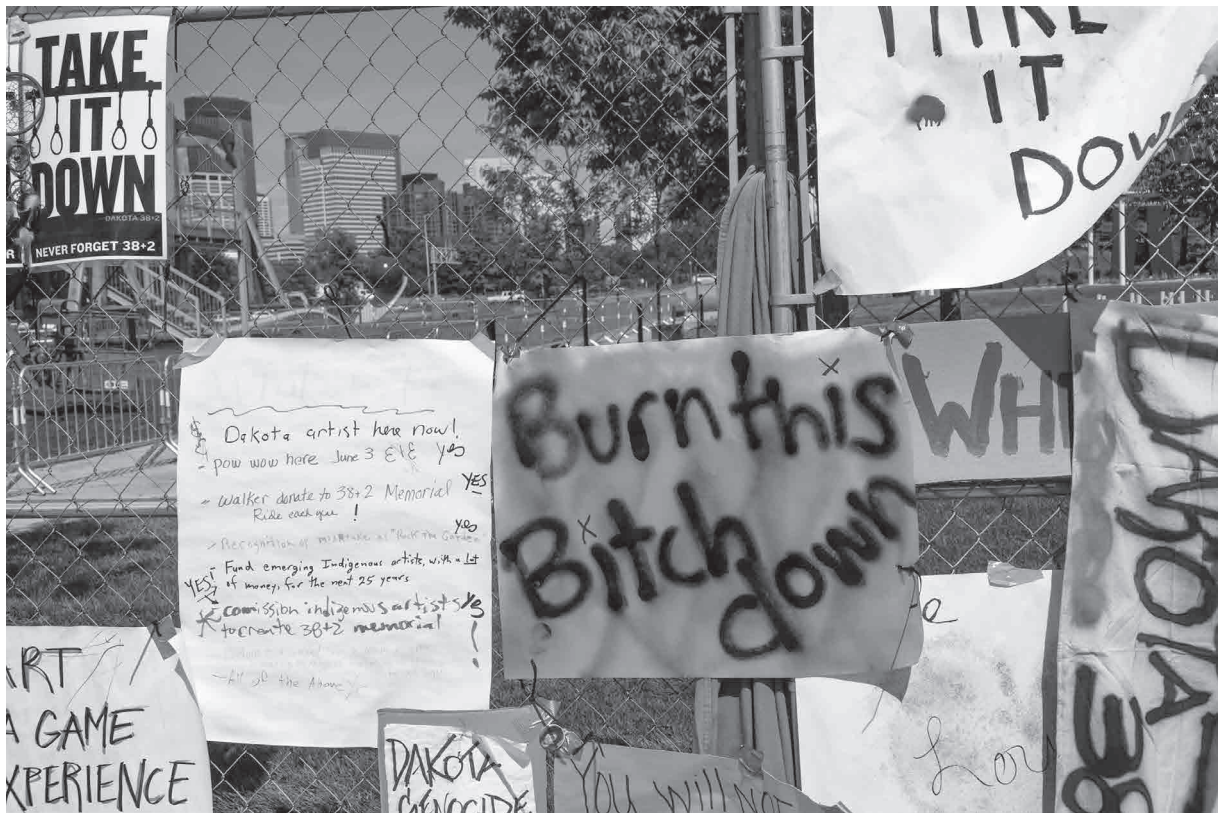 TAKE
IT
DOWN
DAKOTA 38+2
R
NEVER FORGET 38+2
TAKE
IT
DOWN
Dakota artist here now!
pow wow here June 3 yes
Walker donate to 38+2 Memorial YES
Ride each year !
yes
> Recognition of mistake as "Rock the Garden
- Fund emerging Indigenous artists, with a lot
of money, for the next 25 years
YES!
comission indigenous artists yes
to create 38+2 memorial !
-All of the Above
Burn this
Bitch
down
WH
DAKOTA
38
ART
A GAME
XPERIENCE
DAKOTA
GENOCIDE
YOU WILL NOT
e
Lov